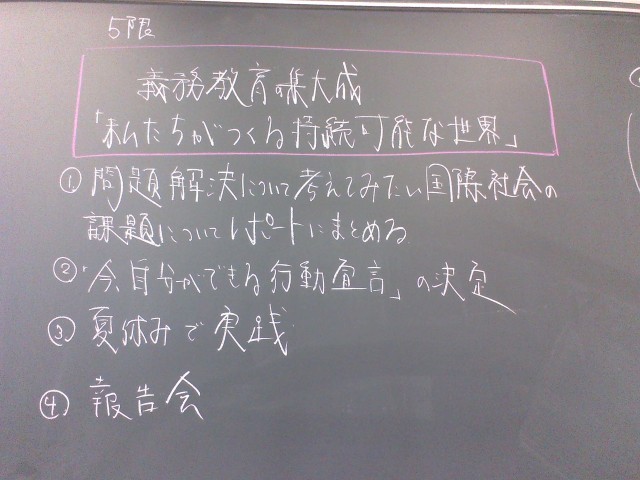 5限
義務教育の集大成
「私たちがつくる持続可能な世界」
① 問題解決について考えてみたい国際社会の
課題についてレポートにまとめる
② 「今、自分ができる行動宣言」の決定
③ 夏休みで実践
④ 報告会